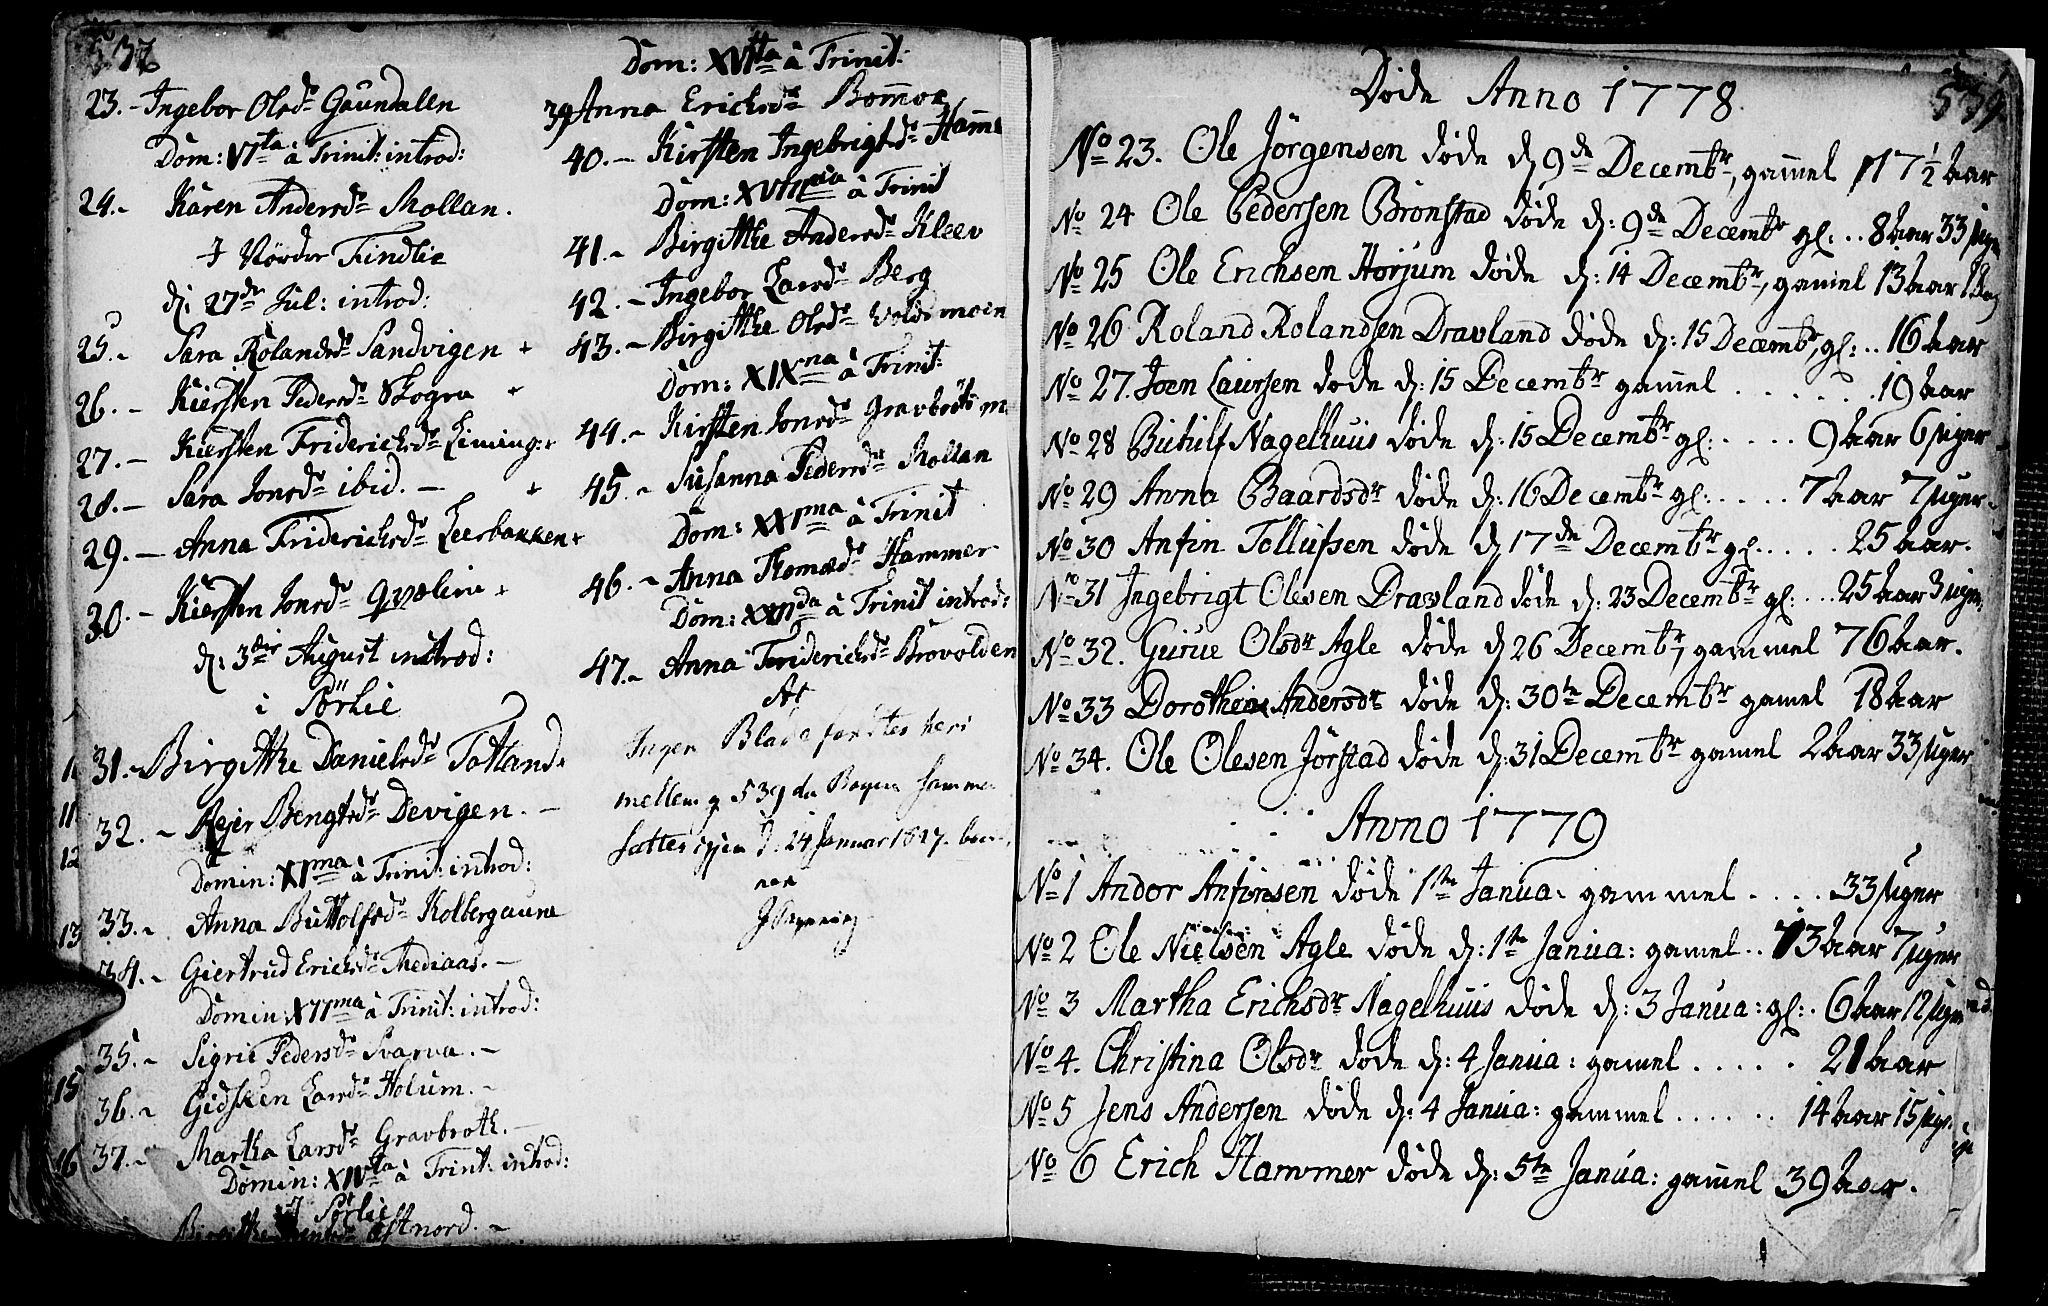 23. - Ingebor Olsdr Gaundalen
Dom: VIta à Trinit: introd:
24. - Karen Andersdr Mollan.
I Nordr Findlie
d: 27de Jul: introd:
25. - Sara Rolandsdr Sandvigen +
26. - Kiersten Pedersdr Skogra +
27. - Kiersten Friderichsdr Liming: +
28. - Sara Jonsdr ibid. - +
29. - Anna Friderichsdr Leerbakken +
30. - Kiersten Jonsdr Qveline +
d: 3die August introd:
i Sörlie
31. - Birgitthe Danielsdr Totland
32. - Rejer Bengtsdr Devigen. -
Domin: XIma à Trinit: introd:
33. - Anna Buttolfsdr Kolbergaune
34. - Giertrud Erichsdr Mediaas. -
Domin: XIIma à Trinit: introd:
35. - Sigrie Pedersdr Svarva. -
36. - Gidsken Larsdr Holum. -
37. - Martha Larsdr Gravbroth. -
Domin: XIVta à Trinit: introd:
I Sörlie
Birgitthe Østnord. -
Dom: XVIta à Trinit:
39 Anna Erichsdr Bomoe
40. - Kirsten Ingebrigtsdr Hamme
Dom: XVIIma à Trinit
41. - Birgitthe Andersdr Kleev
42. - Ingebor Larsdr Berg
43. - Birgitthe Olsdr Voldsmoen
Dom: XIXna à Trinit:
44. - Kirsten Jonsdr Gravbrøtsm
45. - Susanna Pedersdr Mollan
Dom: XXIma à Trinit
46. - Anna Thomædr Hammer
Dom: XXIIda à Trinit introd:
47. - Anna Friderichsdr Brovolden
At
Ingen Blade fandtes heri
mellem p 539 da Bogen sammen
sattes igien d. 24 Januar 1827.
539
Døde Anno 1778.
No 23. Ole Jörgensen døde d 9de Decembr, gamel 17½ aar
No 24 Ole Pedersen Brønstad døde d: 9de Decembr gl: .. 8 aar 33 uger
No 25 Ole Erichsen Horjum døde d: 14 Decembr, gamel 13 aar 1 Dag
No 26 Roland Rolandsen Dravland døde d: 15 Decembr, gl: .. 16 aar
No 27. Joen Laursen døde d: 15 Decembr gamel . . . . . . 19 aar
No 28 Buthilf Nagelhuus døde d: 15 Decembr gl: . . . . 9 aar 6 uger
No 29 Anna Baardsdr døde d: 16 Decembr gl: . . . . 7 aar 7 uger
No 30 Anfin Tollufsen døde d 17de Decembr gl . . . . . 25 aar.
No 31 Ingebrigt Olesen Dravland døde d: 23 Decembr gl: . . . 25 aar 3 uger
No 32. Gurue Olsdr Agle døde d 26 Decembr, gammel 76 aar.
No 33 Dorothea Andersdr døde d: 30te Decembr gamel 18 aar
No 34. Ole Olesen Jörstad døde d: 31 Decembr gamel 2 aar 33 uger
Anno 1779
No 1 Andor Anfinsen døde 1te Janua: gammel . . . . 33 uger
No 2 Ole Nielsen Agle døde d: 1te Janua: gamel .. 73 aar 7 uger
No 3 Martha Erichsdr Nagelhuus døde d: 3 Janua: gl: . 6 aar 12 uger
No 4. Christina Olsdr døde d: 4 Janua: gamel . . . . . 21 aar
No 5 Jens Andersen døde d: 4 Janua: gammel . . . . . . 14 aar 15 uger
No 6 Erich Hammer døde d: 5te Janua: gamel 39 aar.